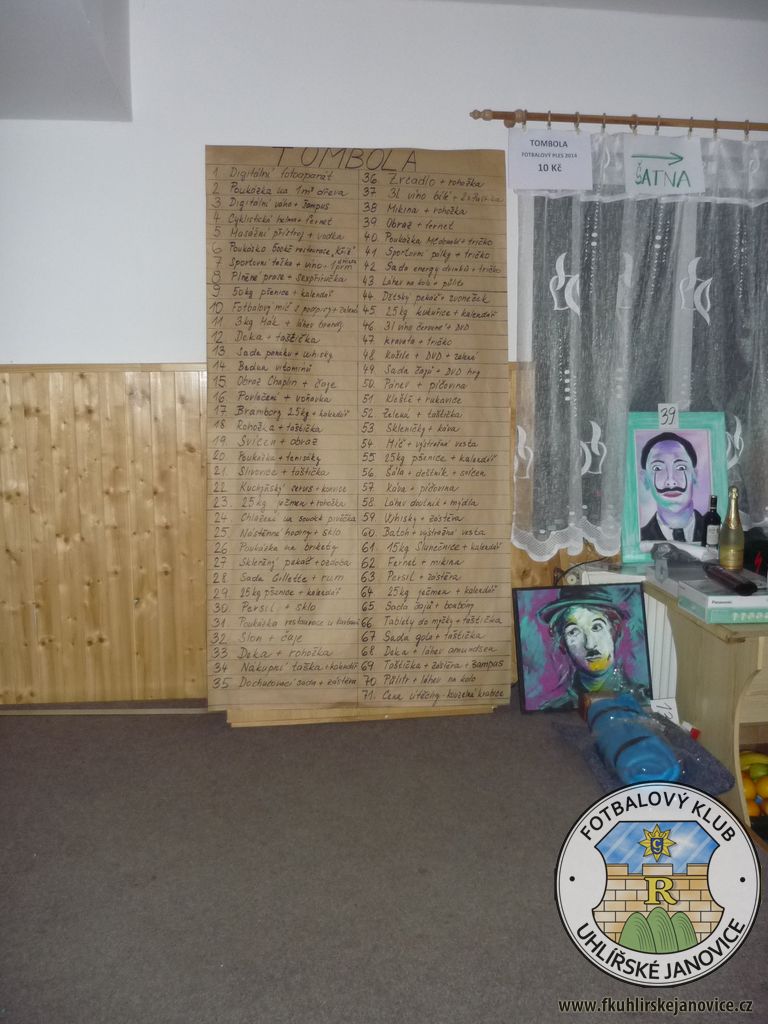 TOMBOLA
1 Digitální fotoaparát
2 Poukázka na 1m³ dřeva
3 Digitální váha + šampus
4 Cyklistická helma + fernet
5 Masážní přístroj + vodka
6 Poukázka 500Kč restaurace
7 Sportovní taška + víno
8 Plněné prase + sexpříručka
9 50kg pšenice + kalendář
10 Fotbalový míč s podpisy + zelená
11 3kg Mák + láhev
12 Deka + taštička
13 Sada panáků + whisky
14 Bedna vitamínů
15 Obraz Chaplin + čaje
16 Povlečení + voňavka
17 Brambory 25kg + kalendář
18 Rohožka + taštička
19. Svícen + obraz
20. Poukázka + tenisáky
21. Slivovice + taštička
22 Kuchyňský servis + konvice
23. 25kg ječmen + rohožka
24 Chlazení na soudek
25 Nástěnné hodiny + sklo
26 Poukázka na brikety
27 Skleněný pekáč + ozdoba
28 Sada Gillette + rum
29. 25kg pšenice + kalendář
30. Persil + sklo
31. Poukázka restaurace u
32. Slon + čaje
33 Deka + rohožka
34 Nákupní taška + kalendář
35 Dochucovací sada + zástěra
36. Zrcadlo + rohožka
37 3l víno bílé +
38 Mikina + rohožka
39 Obraz + fernet
40 Poukázka + tričko
41 Sportovní pálky + tričko
42 Sada energy drinků + tričko
43 Láhev na kolo + půllitr
44 Dětský pekáč + zvoneček
45 25kg kukuřice + kalendář
46 3l víno červené + DVD
47 kravata + tričko
48 Košile + DVD + zelená
49 Sada čajů + DVD hry
50. Pánev + píčovina
51 Kleště + rukavice
52 Zelená + taštička
53 Skleničky + káva
54 Míč + výstražná vesta
55 25kg pšenice + kalendář
56 Šála + deštník + svícen
57 Káva + píčovina
58. Láhev doutník + mýdla
59. Whisky + zástěra
60 Batoh + výstražná vesta
61. 15kg Slunečnice + kalendář
62 Fernet + mikina
63 Persil + zástěra
64 25kg ječmen + kalendář
65 Sada čajů + bonbóny
66 Tablety do myčky + taštička
67 Sada gola + taštička
68 Deka + láhev amundsen
69 Taštička + zástěra + šampus
70 Půllitr + láhev na kolo
71. Cena útěchy - kouzelná krabice
TOMBOLA
FOTBALOVÝ PLES 2014
10 Kč
ŠATNA
39
Panasonic
FOTBALOVÝ KLUB
R
UHLÍŘSKÉ JANOVICE
www.fkuhlirskejanovice.cz